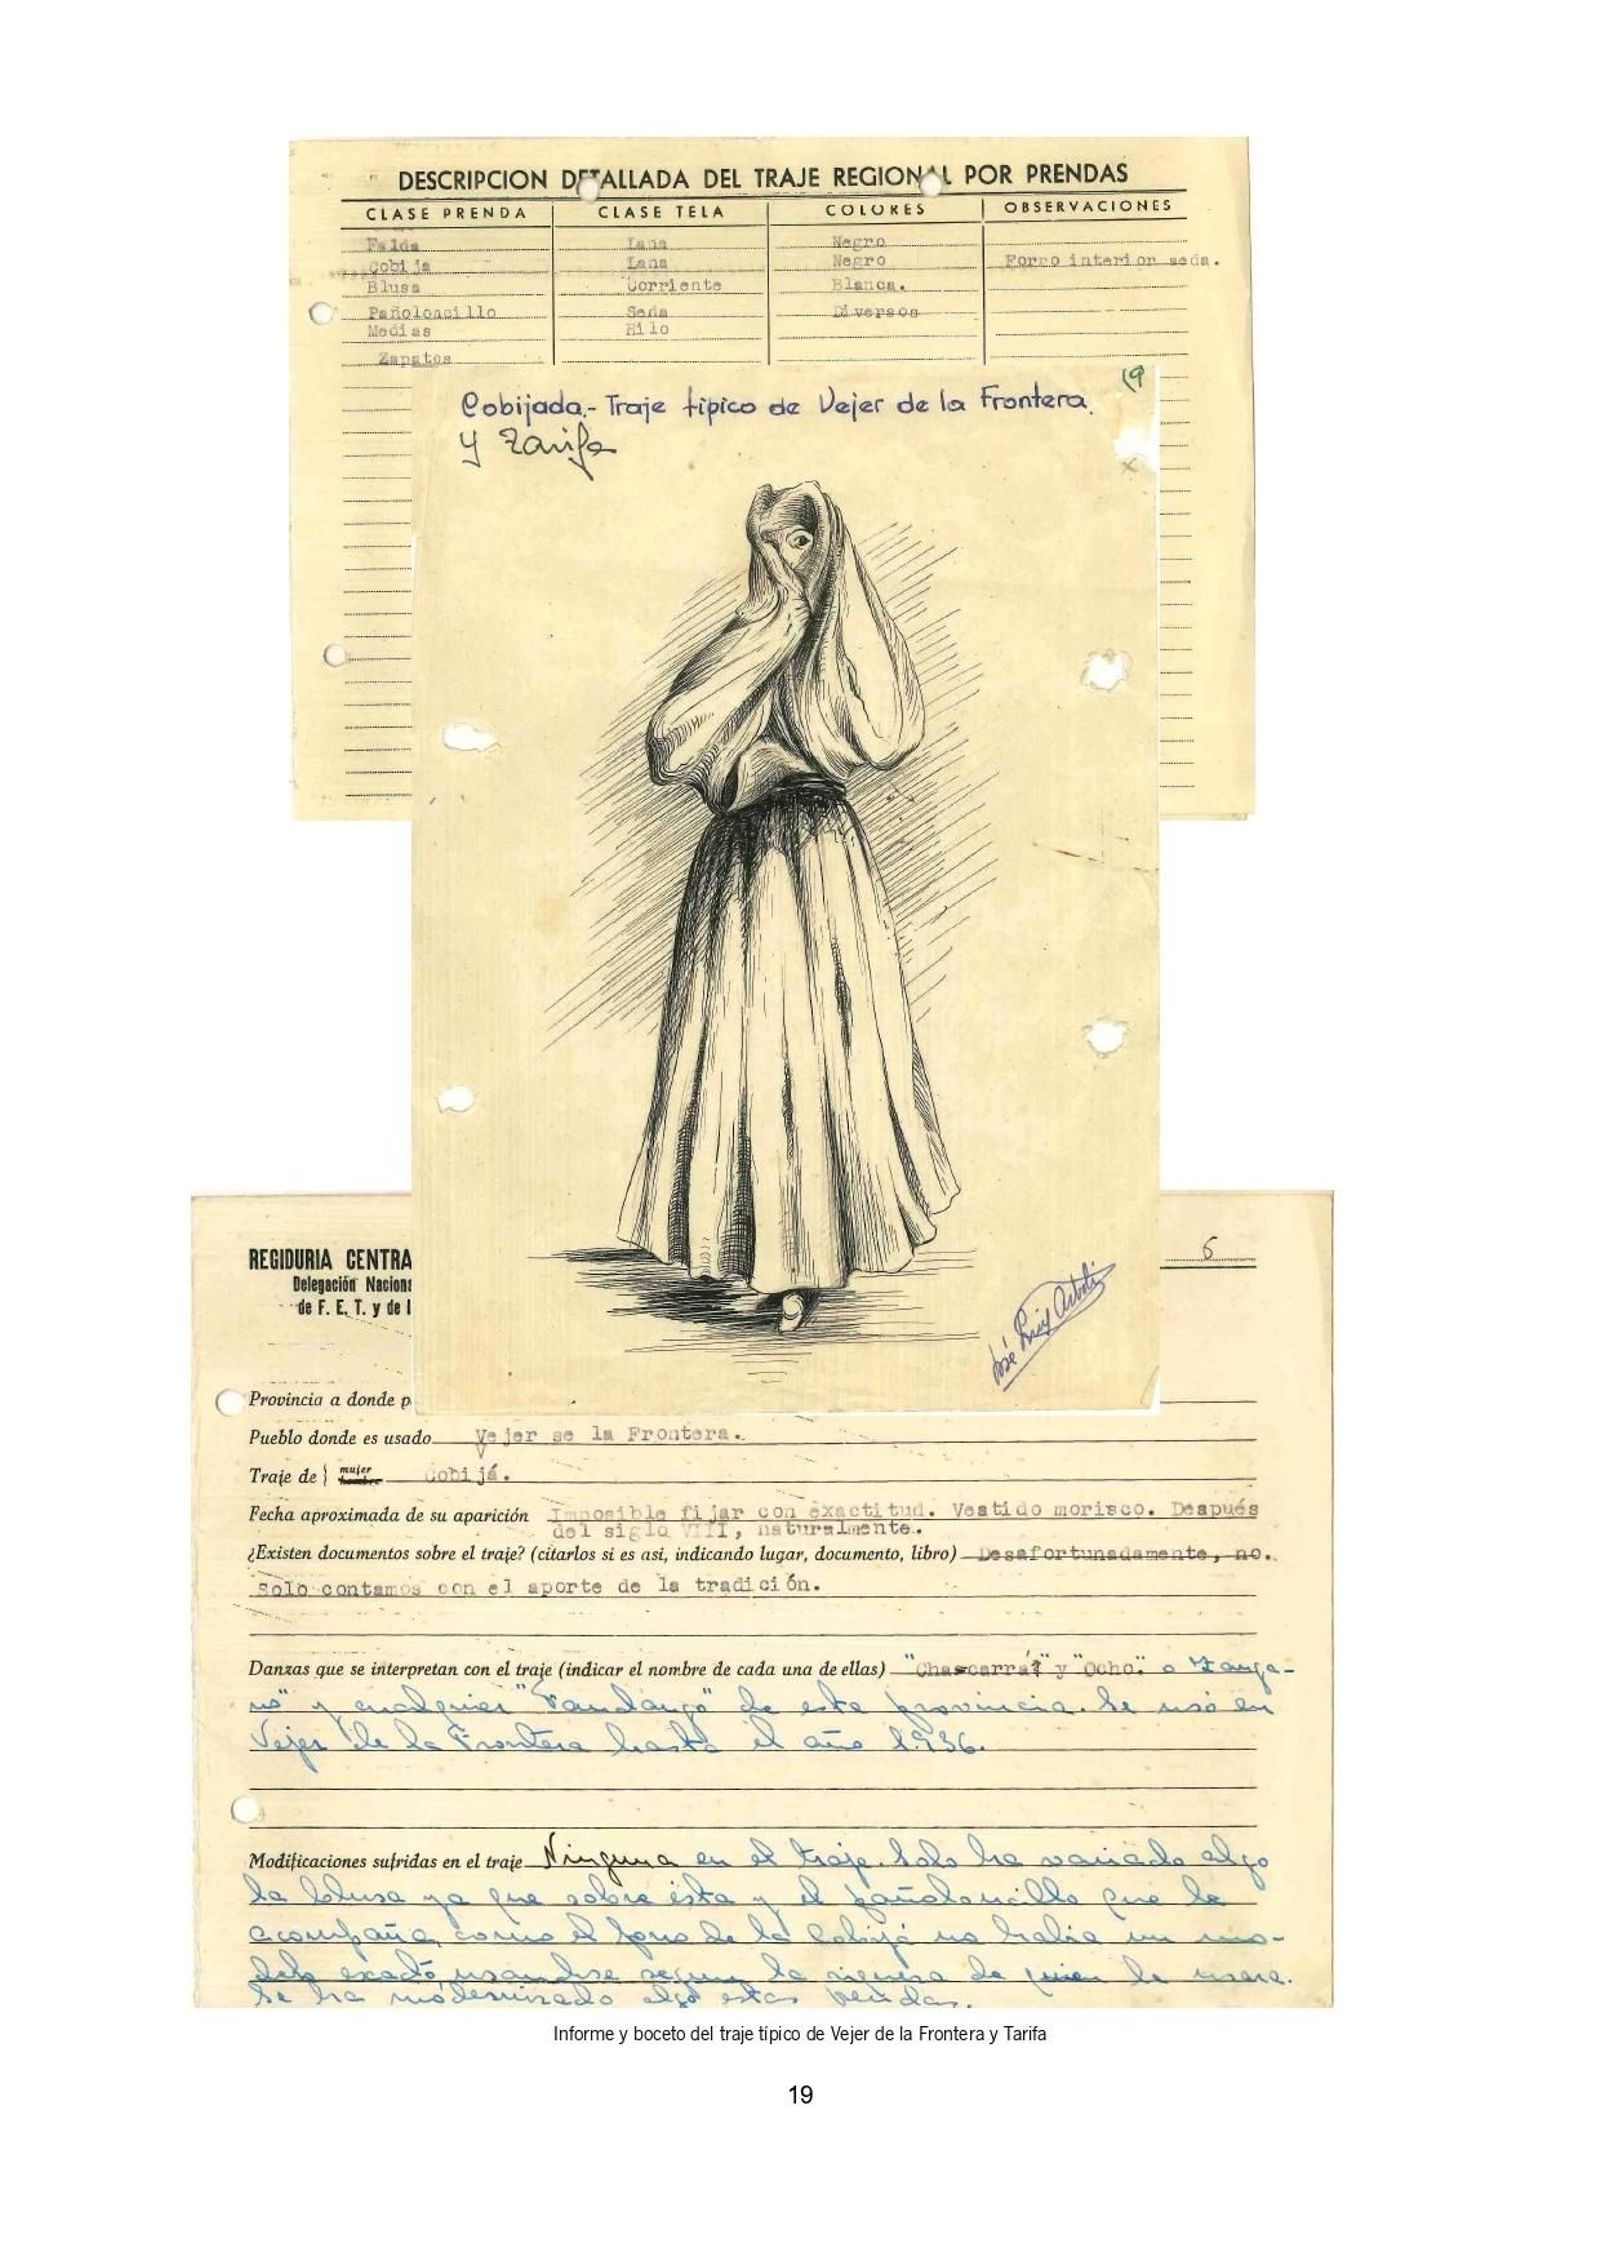 DESCRIPCION DETALLADA DEL TRAJE REGIONAL POR PRENDAS
CLASE PRENDA CLASE TELA COLORES OBSERVACIONES
Falda Lana Negro
Cobija Lana Negro Forro interior seda.
Blusa Corriente Blanca.
Pañoloncillo Seda Diversos
Medias Hilo
Zapatos
19
Cobijada.- Traje típico de Vejer de la Frontera.
y Tarifa
José Ruiz
REGIDURIA CENTRA
Delegación Naciona
de F. E. T. y de
Provincia a donde p
Pueblo donde es usado Vejer se la Frontera.
Traje de mujer hombre Cobijá.
Fecha aproximada de su aparición Imposible fijar con exactitud. Vestido morisco. Después
del siglo VIII, naturalmente.
¿Existen documentos sobre el traje? (citarlos si es asi, indicando lugar, documento, libro) Desafortunadamente, no.
Solo contamos con el aporte de la tradición.
Danzas que se interpretan con el traje (indicar el nombre de cada una de ellas) "Chascarrá" y "Ocho" o "Zanga-
no" y cualquier "Fandango" de esta provincia. Se usó en
Vejer de la Frontera hasta el año 1.936.
Modificaciones sufridas en el traje Ninguna en el traje. Solo ha variado algo
la blusa ya que sobre ésta y el pañoloncillo que la
acompaña, como el forro de la Cobijá no habia un mo-
delo exacto, usandose segun la riqueza de quien la usara.
Se ha modernizado algo estas prendas.
Informe y boceto del traje típico de Vejer de la Frontera y Tarifa
19